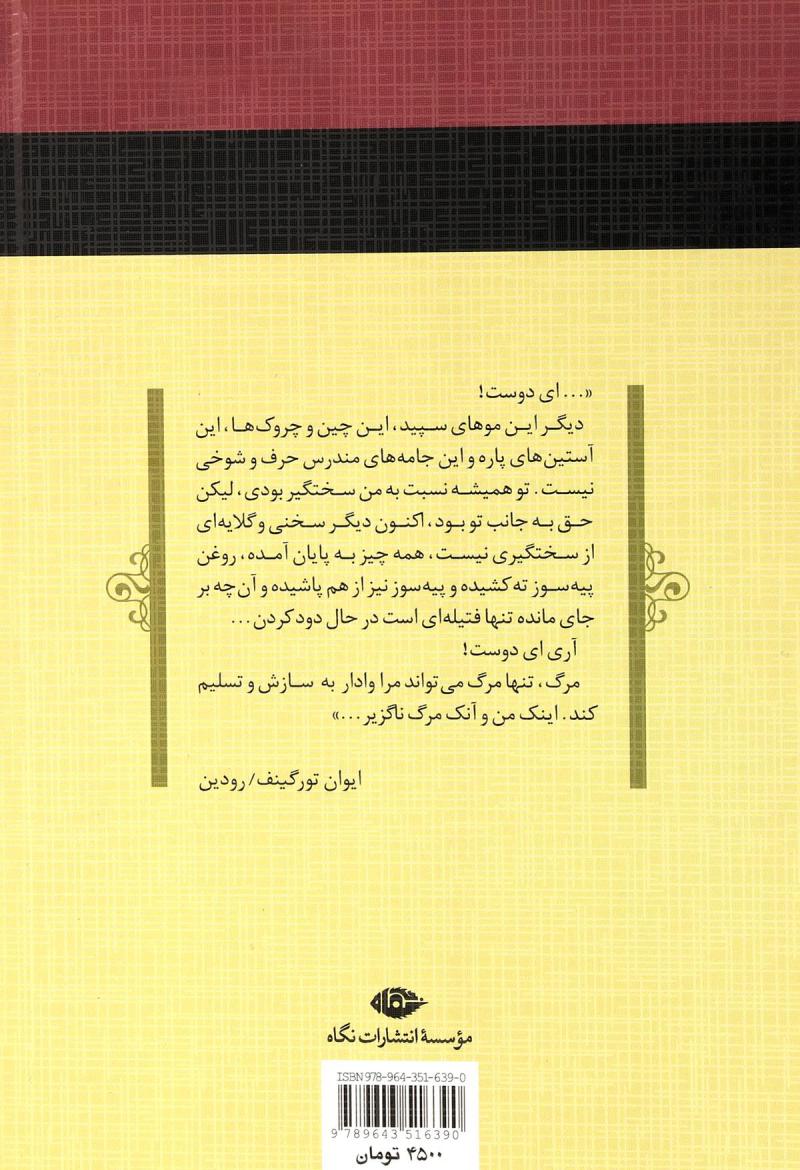 «... ای دوست!
دیگر این موهای سپید، این چین و چروک‌ها، این
آستین‌های پاره و این جامه‌های مندرس حرف و شوخی
نیست. تو همیشه نسبت به من سختگیر بودی، لیکن
حق به جانب تو بود، اکنون دیگر سخنی و گلایه‌ای
از سختگیری نیست، همه چیز به پایان آمده، روغن
پیه‌سوز ته کشیده و پیه‌سوز نیز از هم پاشیده و آن‌چه بر
جای مانده تنها فتیله‌ای است در حال دود کردن...
آری ای دوست!
مرگ، تنها مرگ می‌تواند مرا وادار به سازش و تسلیم
کند. اینک من و آنک مرگ ناگزیر...»
ایوان تورگینف/ رودین
نگاه
مؤسسهٔ انتشارات نگاه
ISBN 978-964-351-639-0
9 789643 516390
۴۵۰۰ تومان